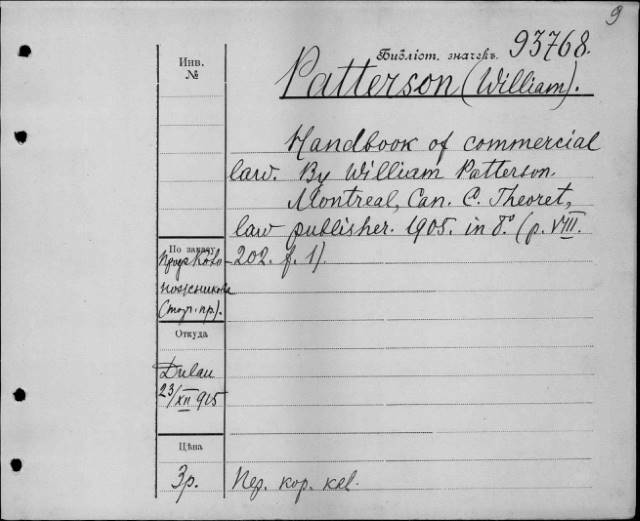 9
Библіот. значекъ 93768.
Инв.
№
Patterson (William).
Handbook of commercial
law. By William Patterson.
Montreal, Can. C. Theoret,
law publisher. 1905. in 8.° (p. VIII.
202. f. 1).
По заказу
Проф.
ножникова
(торг. пр.).
Откуда
Dulau
23/XII 915
Цѣна
3р.
Пер. кор. кол.